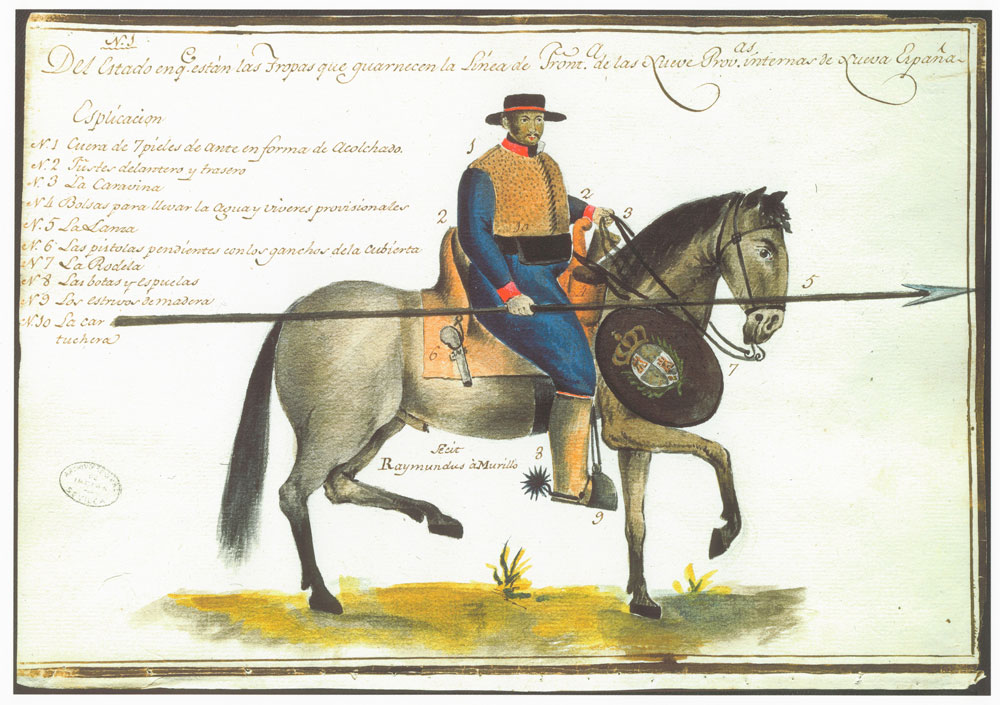 N. 1
Del Estado en q.e están las Tropas que guarnecen la Línea de Front.a de las Nueve Prov.as internas de Nueva España
Esplicacion
N. 1 Cuera de 7 pieles de Ante en forma de Acolchado.
N. 2 Fustes delantero y trasero
N. 3 La Caravina
N. 4 Bolsas para llevar la Agua y viveres provisionales
N. 5 La Lanza
N. 6 Las pistolas pendientes con los ganchos de la Cubierta
N. 7 La Rodela
N. 8 Las botas y espuelas
N. 9 Los estrivos de madera
N. 10 La car
tuchera
1
2
2
3
10
5
6
7
8
9
Fecit
Raymundus à Murillo
ARCHIVO GENERAL
DE
INDIAS
SEVILLA